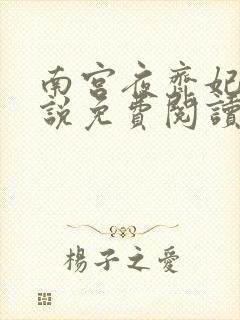 南宮夜齊妃
說免費閱讀
楊子之愛